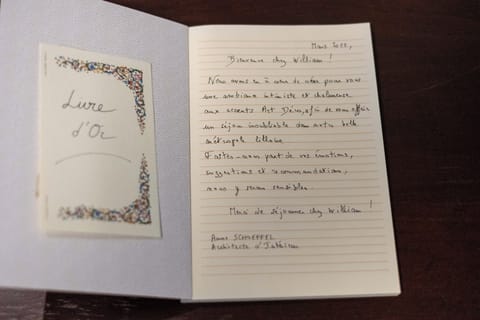 Livre
d'Or
Mars 2022,
Bienvenue chez William !
Nous avons eu à cœur de créer pour vous
une ambiance intimiste et chaleureuse
aux accents Art Déco, afin de vous offrir
un séjour inoubliable dans notre belle
métropole lilloise.
Faites-nous part de vos émotions,
suggestions et recommandations,
nous y serons sensibles.
Merci de séjourner chez William !
Anne SCHOEFFEL
Architecte d'Intérieur